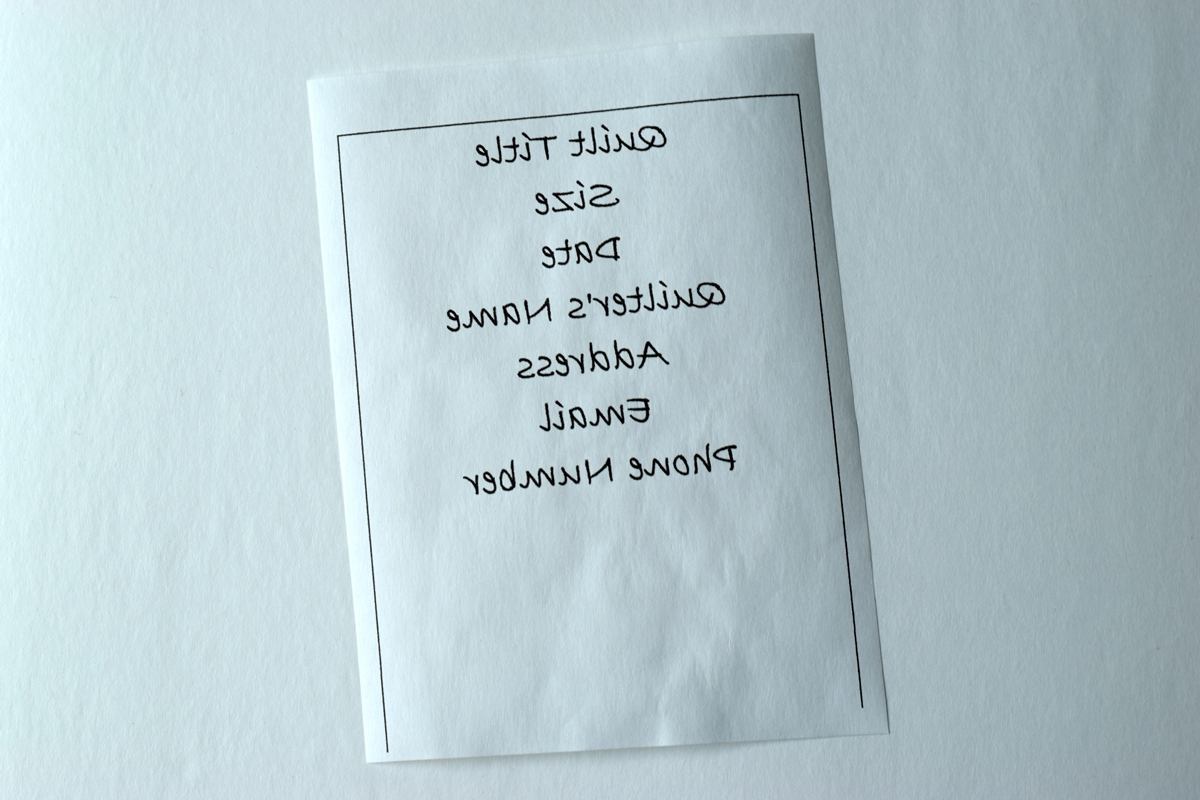 Quilt Title
Size
Date
Quilter's Name
Address
Email
Phone Number